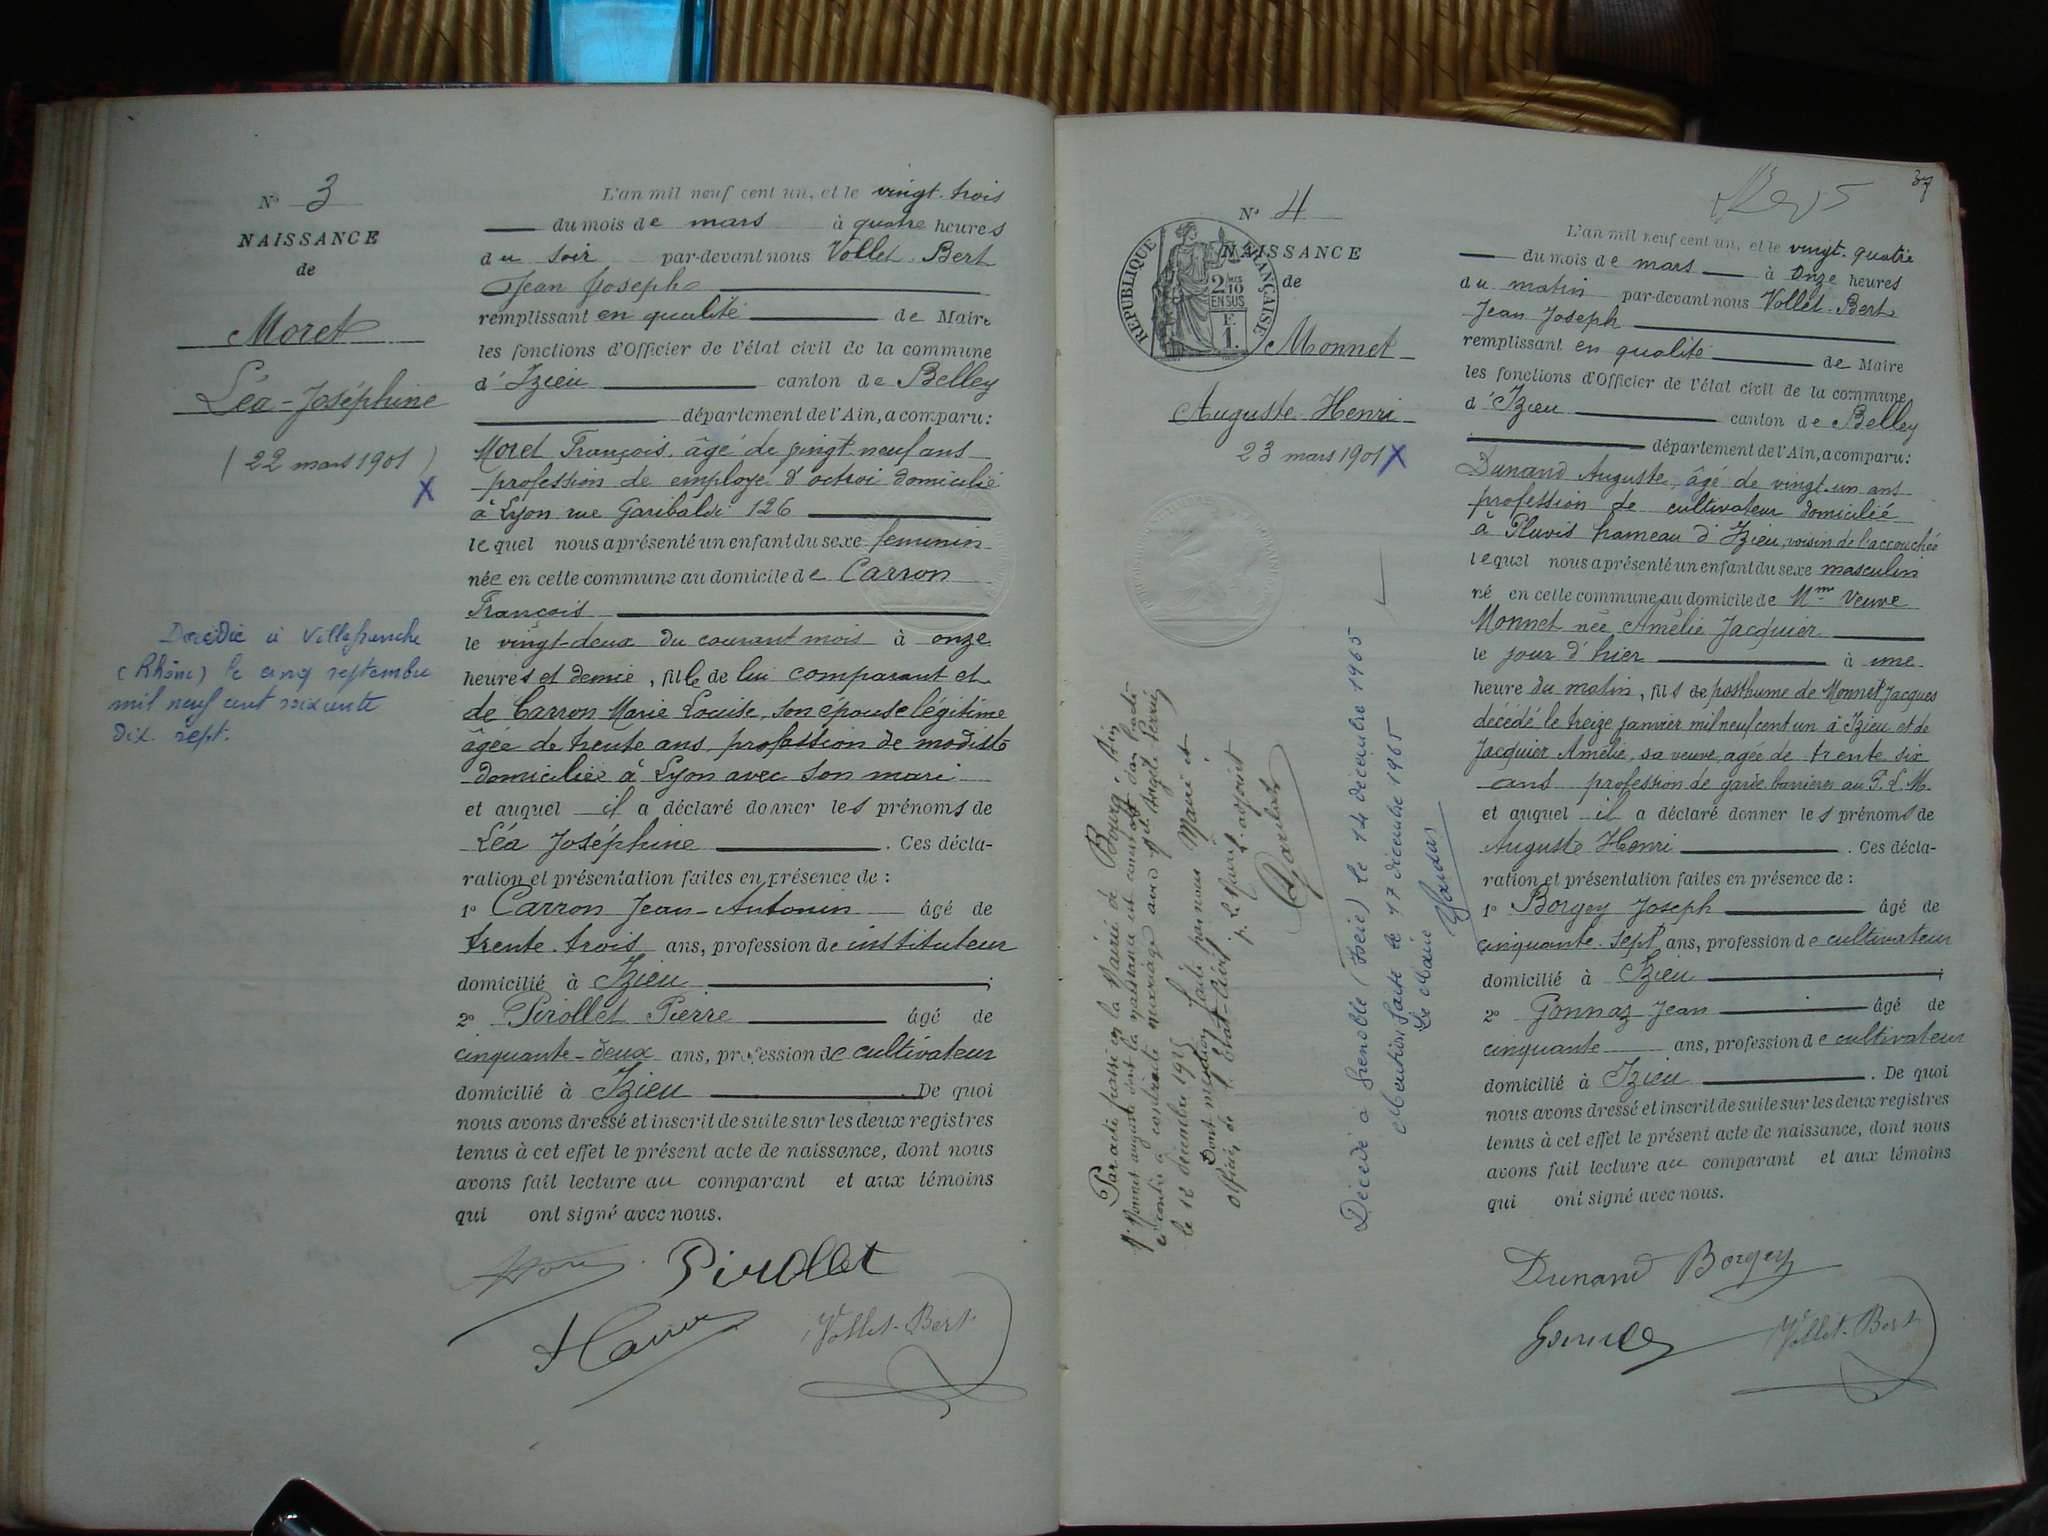 N° 3
NAISSANCE
de
Moret
Léa-Joséphine
(22 mars 1901)
X
Décédée à Villefranche
(Rhône) le cinq septembre
mil neuf cent soixante
dix. sept.
L'an mil neuf cent un, et le vingt-trois
du mois de mars à quatre heures
du soir par-devant nous Vollet-Bert
Jean Joseph
remplissant en qualité de Maire
les fonctions d'Officier de l'état civil de la commune
d'Izieu canton de Belley
département de l'Ain, a comparu:
Moret François, âgé de vingt-neuf ans
profession de employé d'octroi domicilié
à Lyon rue Garibaldi 126
lequel nous a présenté un enfant du sexe feminin
née en cette commune au domicile de Carron
François
le vingt-deux du courant mois à onze
heures et demie, fille de lui comparant et
de Carron Marie Louise, son epouse légitime
âgée de trente ans, profession de modiste
domiciliée à Lyon avec son mari
et auquel il a déclaré donner les prénoms de
Léa Joséphine. Ces décla-
ration et présentation faites en présence de:
1° Carron Jean-Antonin âgé de
trente-trois ans, profession de instituteur
domicilié à Izieu;
2° Pirollet Pierre âgé de
cinquante-deux ans, profession de cultivateur
domicilié à Izieu. De quoi
nous avons dressé et inscrit de suite sur les deux registres
tenus à cet effet le présent acte de naissance, dont nous
avons fait lecture au comparant et aux témoins
qui ont signé avec nous.
Pirollet
Vollet-Bert
37
N° 4
RÉPUBLIQUE FRANÇAISE
2/10
EN SUS
F.
1.
NAISSANCE
de
Monnet
Auguste Henri
23 mars 1901 X
Par acte passé en la Mairie de Bourg, Ain
Mr Monnet auguste dont la naissance est constatée dans l'acte
ci contre a contracté mariage avec Angèle
le 12 décembre 1925
Dont mention faite par nous Maire et
officier de l'état-civil
p. le Maire l'adjoint
Décédé à Grenoble (Isère) le 14 décembre 1965
Mention faite le 17 décembre 1965
Le Maire
L'an mil neuf cent un, et le vingt-quatre
du mois de mars à onze heures
du matin par-devant nous Vollet-Bert
Jean Joseph
remplissant en qualité de Maire
les fonctions d'Officier de l'état civil de la commune
d'Izieu canton de Belley
département de l'Ain, a comparu:
Dunand Auguste, âgé de vingt-un ans
profession de cultivateur domicilié
à Pluvis hameau d'Izieu, voisin de l'accouchée
lequel nous a présenté un enfant du sexe masculin
né en cette commune au domicile de Mme Veuve
Monnet née Amélie Jacquier
le jour d'hier à une
heure du matin, fils de posthume de Monnet Jacques
décédé le treize janvier mil neuf cent un à Izieu et de
Jacquier Amélie, sa veuve, agée de trente six
ans profession de garde barrières au P. L. M.
et auquel il a déclaré donner les prénoms de
Auguste Henri. Ces décla-
ration et présentation faites en présence de:
1° Borgey Joseph âgé de
cinquante-sept ans, profession de cultivateur
domicilié à Izieu;
2° Gonnaz Jean âgé de
cinquante ans, profession de cultivateur
domicilié à Izieu. De quoi
nous avons dressé et inscrit de suite sur les deux registres
tenus à cet effet le présent acte de naissance, dont nous
avons fait lecture au comparant et aux témoins
qui ont signé avec nous.
Dunand Borgey
Vollet-Bert